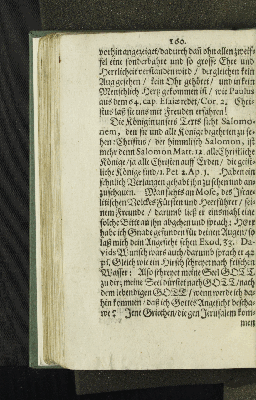 160.
vorhin angezeiget/ dadurch daß ohn allen zweif-
fel eine sonderbahre und so grosse Ehre und
Herrlicheit verstanden wird / dergleichen kein
Aug gesehen / kein Ohr gehöret / und in kein
Menschlich Hertz gekommen ist / wie Paulus
aus dem 64. cap. Esaiæ redet / Cor. 2. Chri-
stus laß sie uns mit Freuden erfahren!
Die Königin unsers Texts sieht Salomo-
nem, den sie und alle Könige begehrten zu se-
hen: Christus / der himmlisch Salomon, ist
mehr denn Salomon Matt. 12. alle Christliche
Könige / ja alle Christen auff Erden / die geist-
liche Könige sind / 1. Pet 2. Ap. 1. Haben ein
sehnlich Verlangen gehabt ihn zu sehen und an-
zuschauen. Man siehts an Mose, des Israe-
litischen Volckes Fürsten und Heerführer / sei-
nem Freunde / darumb ließ er einsmahl eine
solche Bitte an ihn abgehen und sprach: HErr
habe ich Gnade gefunden für deinen Augen / so
laß mich dein Angesicht sehen Exod. 33. Da-
vids Wunsch wars auch / darumb sprach er 42
ps. Gleich wie ein Hirsch schreyet nach frischen
Wasser: Also schreyet meine Seel GOTT
zu dir; meine Seel dürstet nach GOTT / nach
dem lebendigen GOTT / wenn werde ich da-
hin kommen / daß ich Gottes Angesicht bescha-
we? Jene Griechen / die gen Jerusalem kom-
men